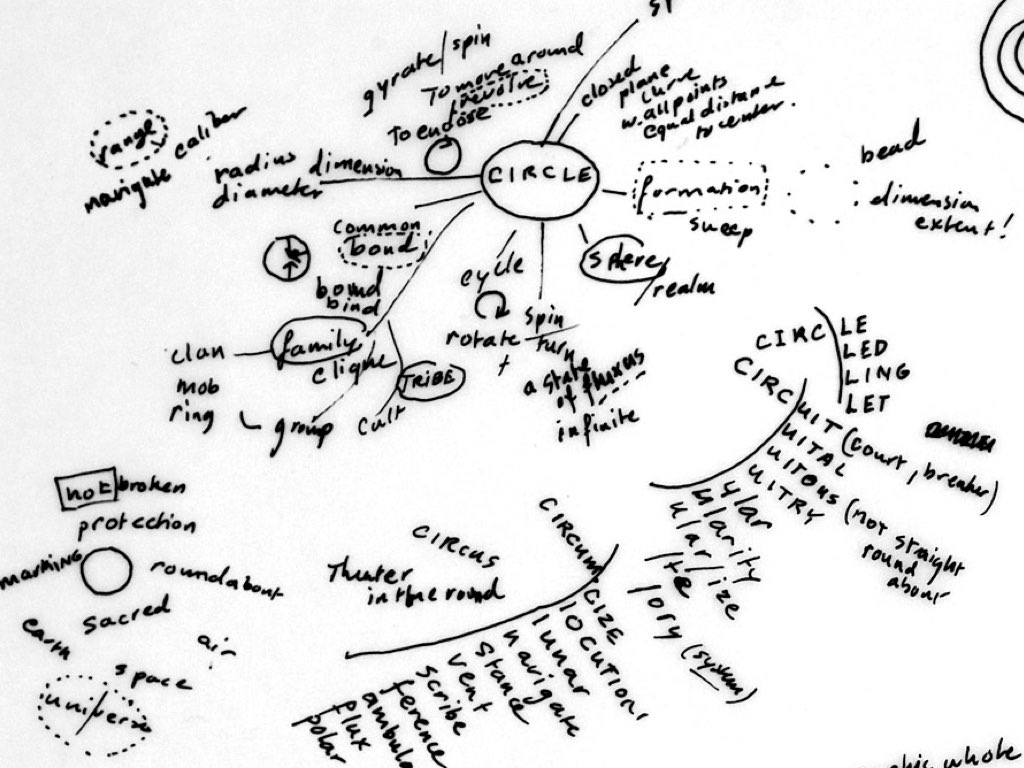 ST
gyrate/spin
To move around
revolve
To enclose
closed
plane
curve
w. all points
equal distance
to center.
range
caliber
navigate
radius
diameter
dimension
CIRCLE
formation
sweep
bead
dimension
extent!
common
bond
bound
bind
cycle
rotate
+
spin
turn
a state
of fluxus
infinite
sphere
realm
clan
family
clique
mob
ring
group
TRIBE
cult
CIRC LE
LED
LING
LET
CIRC UIT (court, breaker)
UITAL
UITOUS (not straight
round
about
UITRY
ular
ularity
ular/ize
lory (system)
not broken
protection
marking
roundabout
sacred
earth
air
space
universe
CIRCUS
Theater
in the round
CIRCUM
CIZE
LOCUTION
lunar
navigate
stance
vent
scribe
ference
ambula
flux
polar
whole